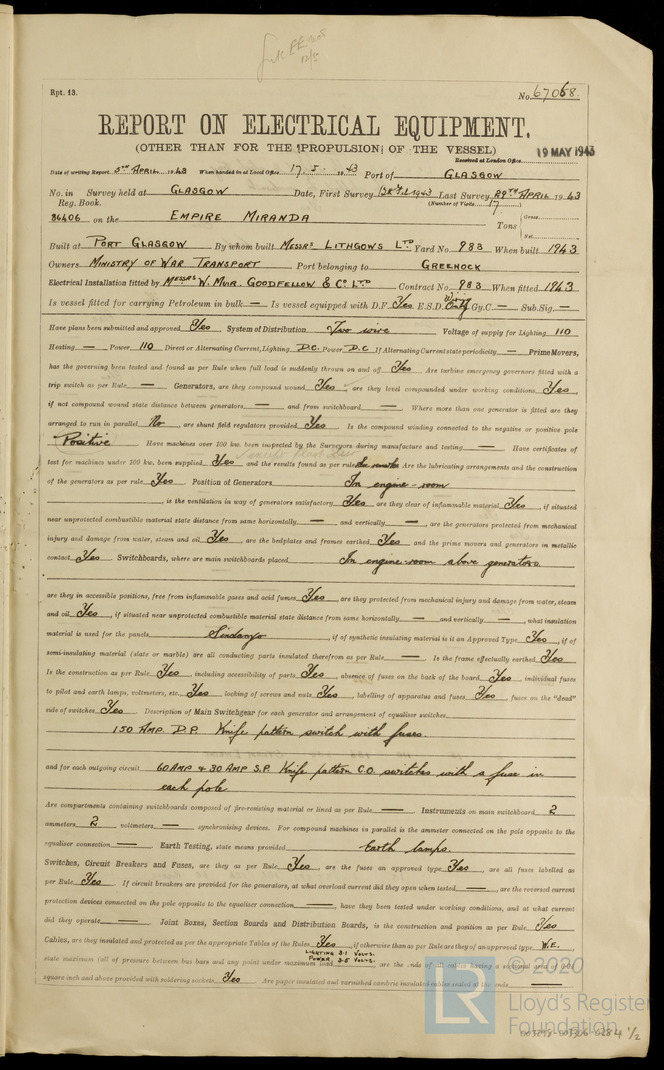 Rpt. 13.
No. 67068.
REPORT ON ELECTRICAL EQUIPMENT.
(OTHER THAN FOR THE PROPULSION OF THE VESSEL)
Received at London Office 19 MAY 1943
Date of writing Report. 5TH APRIL. 1943 When handed in at Local Office 17.5. 1943 Port of GLASGOW
No. in Survey held at GLASGOW Date, First Survey 1943 Last Survey 29TH APRIL 1943
Reg. Book. (Number of Visits 17)
36406 on the EMPIRE MIRANDA Tons Gross Net
Built at PORT GLASGOW By whom built MESSRS LITHGOWS LTD Yard No. 983 When built 1943
Owners MINISTRY OF WAR TRANSPORT Port belonging to GREENOCK
Electrical Installation fitted by MESSRS W. MUIR. GOODFELLOW & CO LTD Contract No. 983 When fitted 1943
Is vessel fitted for carrying Petroleum in bulk — Is vessel equipped with D.F. Yes E.S.D. Wiring Only Gy.C. — Sub.Sig. —
Have plans been submitted and approved Yes System of Distribution Two wire Voltage of supply for Lighting 110
Heating — Power 110 Direct or Alternating Current, Lighting D.C. Power D.C If Alternating Current state periodicity — Prime Movers,
has the governing been tested and found as per Rule when full load is suddenly thrown on and off Yes Are turbine emergency governors fitted with a
trip switch as per Rule — Generators, are they compound wound Yes, are they level compounded under working conditions Yes,
if not compound wound state distance between generators — and from switchboard — Where more than one generator is fitted are they
arranged to run in parallel No, are shunt field regulators provided Yes Is the compound winding connected to the negative or positive pole
Positive Have machines over 100 kw. been inspected by the Surveyors during manufacture and testing — Have certificates of
test for machines under 100 kw. been supplied Yes and the results found as per rule Are the lubricating arrangements and the construction
of the generators as per rule Yes Position of Generators In engine-room
, is the ventilation in way of generators satisfactory Yes are they clear of inflammable material Yes, if situated
near unprotected combustible material state distance from same horizontally — and vertically —, are the generators protected from mechanical
injury and damage from water, steam and oil Yes, are the bedplates and frames earthed Yes and the prime movers and generators in metallic
contact Yes Switchboards, where are main switchboards placed In engine-room above generators
are they in accessible positions, free from inflammable gases and acid fumes Yes, are they protected from mechanical injury and damage from water, steam
and oil Yes, if situated near unprotected combustible material state distance from same horizontally — and vertically —, what insulation
material is used for the panels Sindanyo, if of synthetic insulating material is it an Approved Type Yes, if of
semi-insulating material (slate or marble) are all conducting parts insulated therefrom as per Rule — Is the frame effectually earthed Yes
Is the construction as per Rule Yes, including accessibility of parts Yes, absence of fuses on the back of the board Yes, individual fuses
to pilot and earth lamps, voltmeters, etc. Yes locking of screws and nuts Yes, labelling of apparatus and fuses Yes, fuses on the "dead"
side of switches Yes Description of Main Switchgear for each generator and arrangement of equaliser switches
150 AMP. D.P. Knife pattern switch with fuses.
and for each outgoing circuit 60 AMP & 30 AMP S.P. Knife pattern C.O. switches with a fuse in
each pole
Are compartments containing switchboards composed of fire-resisting material or lined as per Rule — Instruments on main switchboard 2
ammeters 2 voltmeters — synchronising devices. For compound machines in parallel is the ammeter connected to the pole opposite to the
equaliser connection — Earth Testing, state means provided Earth lamps.
Switches, Circuit Breakers and Fuses, are they as per Rule Yes, are the fuses an approved type Yes, are all fuses labelled as
per Rule Yes If circuit breakers are provided for the generators, at what overload current did they open when tested —, are the reversed current
protection devices connected on the pole opposite to the equaliser connection —, have they been tested under working conditions, and at what current
did they operate — Joint Boxes, Section Boards and Distribution Boards, is the construction and position as per Rule Yes
Cables, are they insulated and protected as per the appropriate Tables of the Rules Yes, if otherwise than as per Rule are they of an approved type W.E.
LIGHTING 3.1 VOLTS.
state maximum fall of pressure between bus bars and any point under maximum load POWER 3.5 VOLTS, are the ends of all cables having a sectional area of 0.04
square inch and above provided with soldering sockets Yes Are paper insulated and varnished cambric insulated cables sealed at the ends —
LR
© 2020
Lloyd's Register
Foundation
003298-003306-0284 1/2